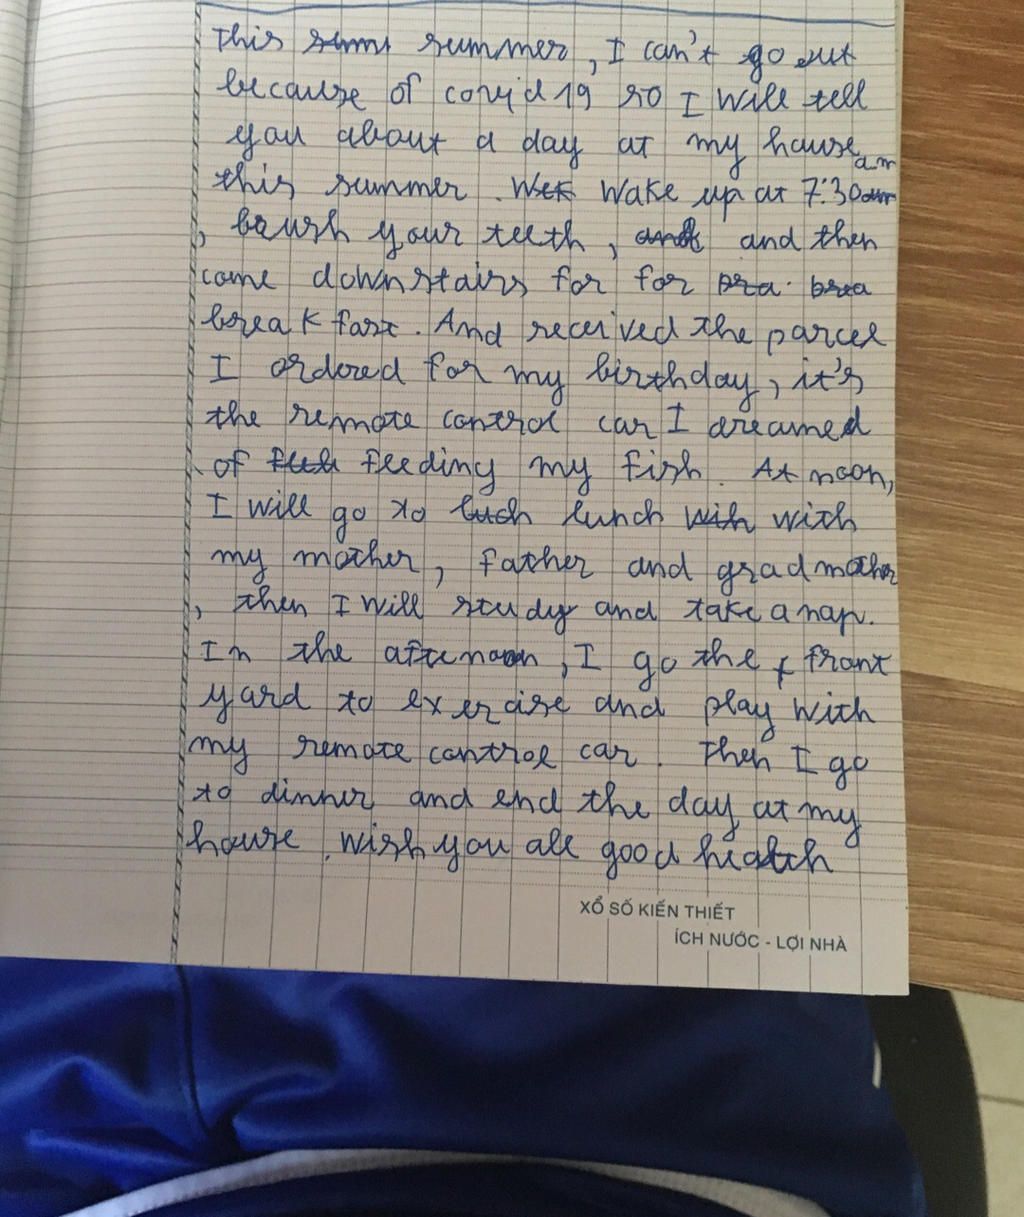 This summer, I can't go out
because of covid 19 so I will tell
you about a day at my house
this summer. Wake up at 7:30 am
, brush your teeth, and then
come downstairs for for
break fast. And received the parcel
I ordered for my birthday, it's
the remote control car I dreamed
of feeding my fish. At noon,
I will go to lunch with
my mother, father and gradmother
, then I will study and take a nap.
In the afternoon, I go the front
yard to exercise and play with
my remote control car. Then I go
to dinner and end the day at my
house. wish you all good health
XỔ SỐ KIẾN THIẾT
ÍCH NƯỚC - LỢI NHÀ